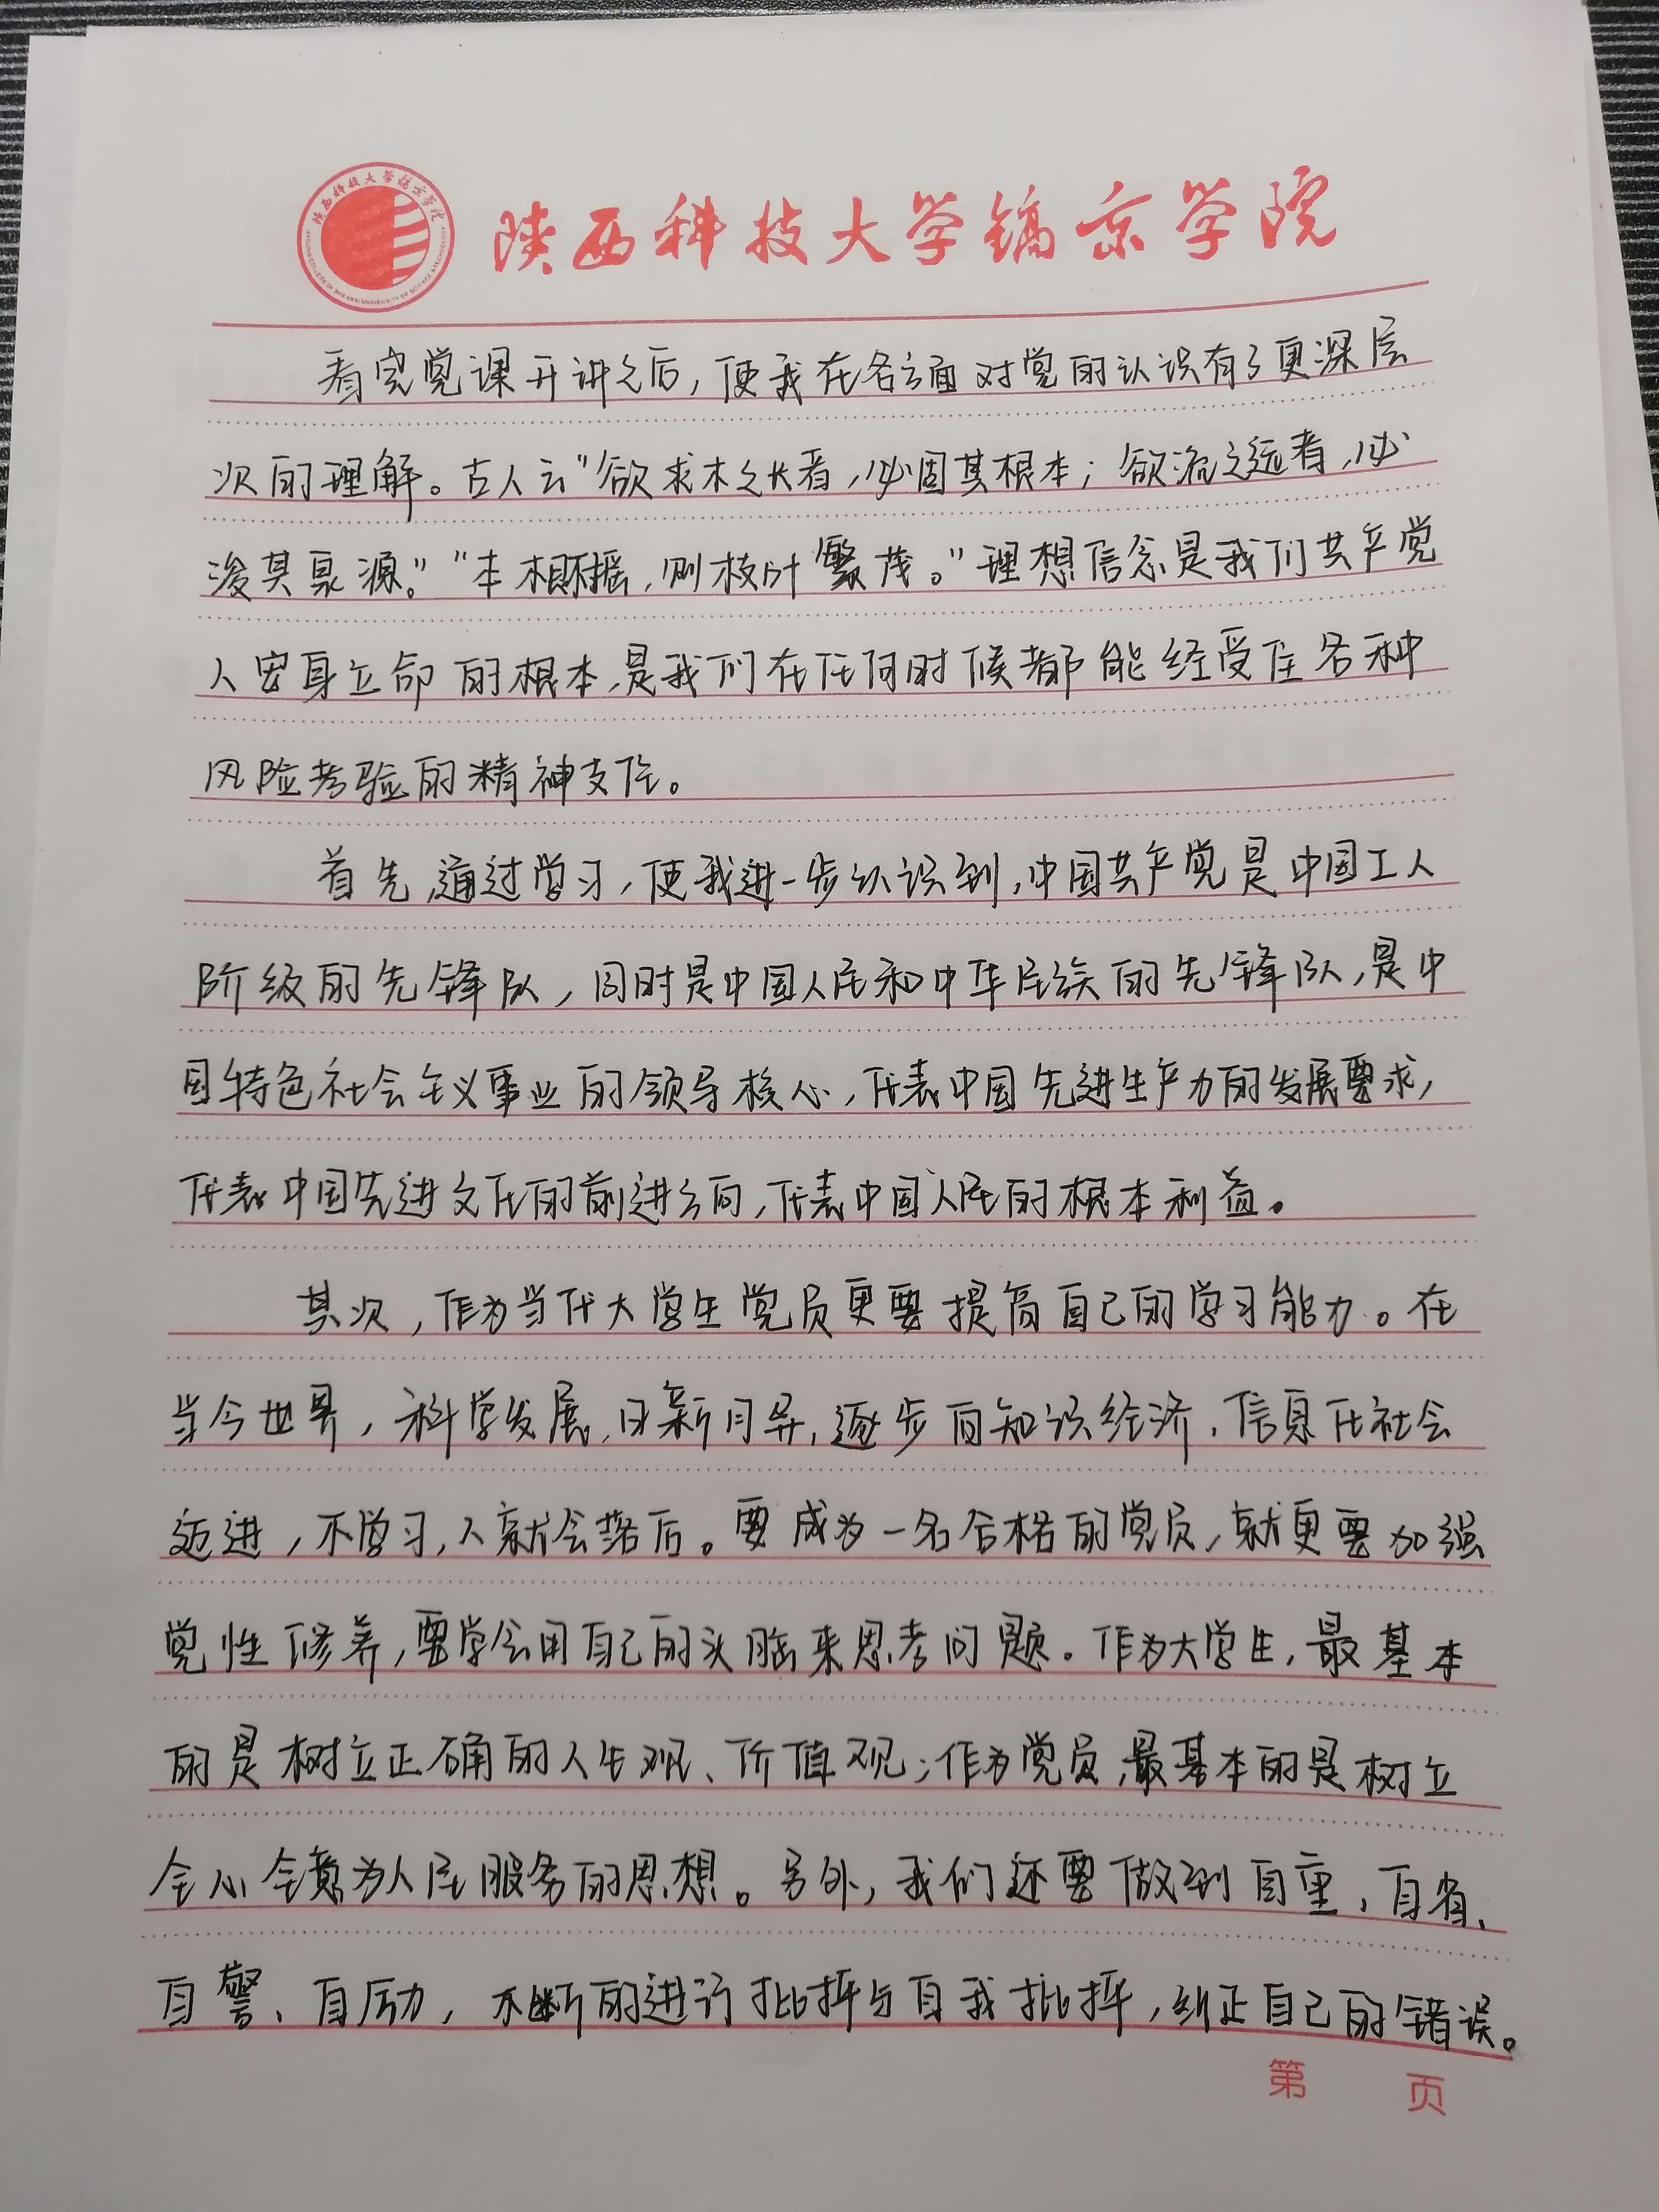 陕西科技大学镐京学院
看完党课开讲之后，使我在各方面对党的认识有了更深层
次的理解。古人云"欲求木之长者，必固其根本；欲流之远者，必
浚其泉源。""本根不摇，则枝叶繁茂。"理想信念是我们共产党
人安身立命的根本，是我们在任何时候都能经受住各种
风险考验的精神支住。
首先，通过学习，使我进一步认识到，中国共产党是中国工人
阶级的先锋队，同时是中国人民和中华民族的先锋队，是中
国特色社会主义事业的领导核心，代表中国先进生产力的发展要求，
代表中国先进文化的前进方向，代表中国人民的根本利益。
其次，作为当代大学生党员更要提高自己的学习能力。在
当今世界，科学发展，日新月异，逐步向知识经济，信息化社会
迈进，不学习，人就会落后。要成为一名合格的党员，就更要加强
党性修养，要学会用自己的头脑来思考问题。作为大学生，最基本
的是树立正确的人生观、价值观；作为党员，最基本的是树立
全心全意为人民服务的思想。另外，我们还要做到自重，自省、
自警、自励，不断的进行批评与自我批评，纠正自己的错误。
第 页